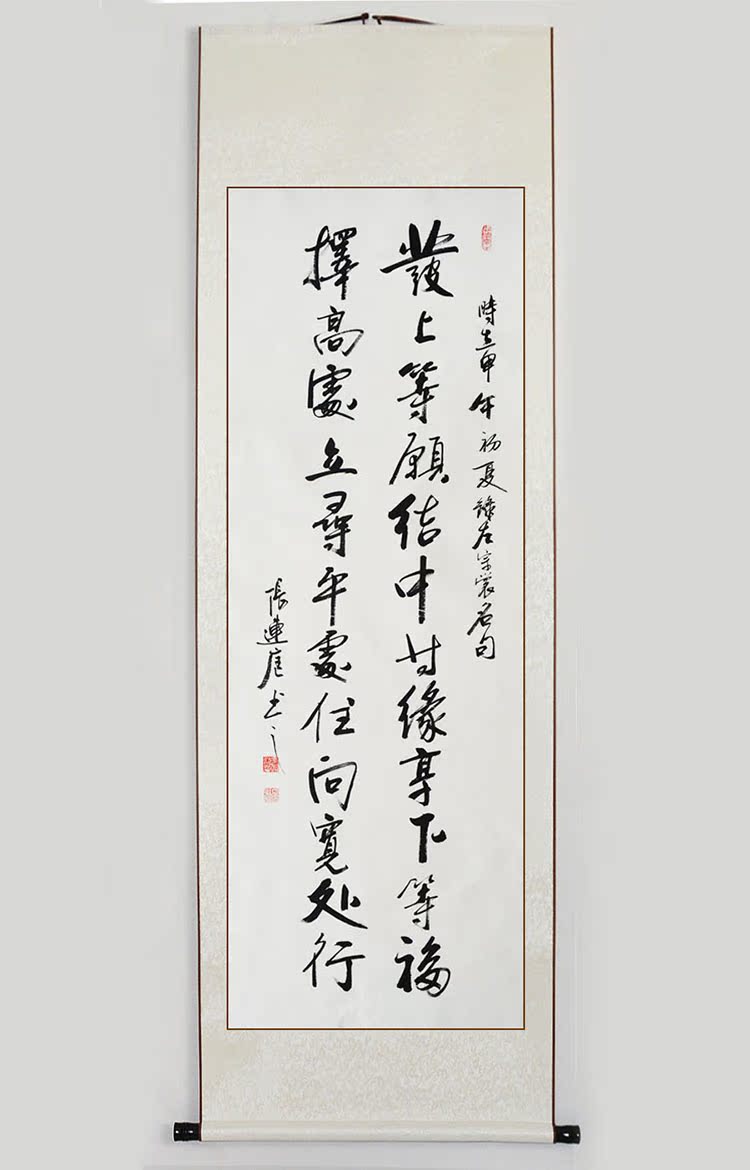 時在甲午初夏錄左宗棠名句
發上等願結中等缘享下等福
擇高處立尋平處住向寬处行
張連庭书之